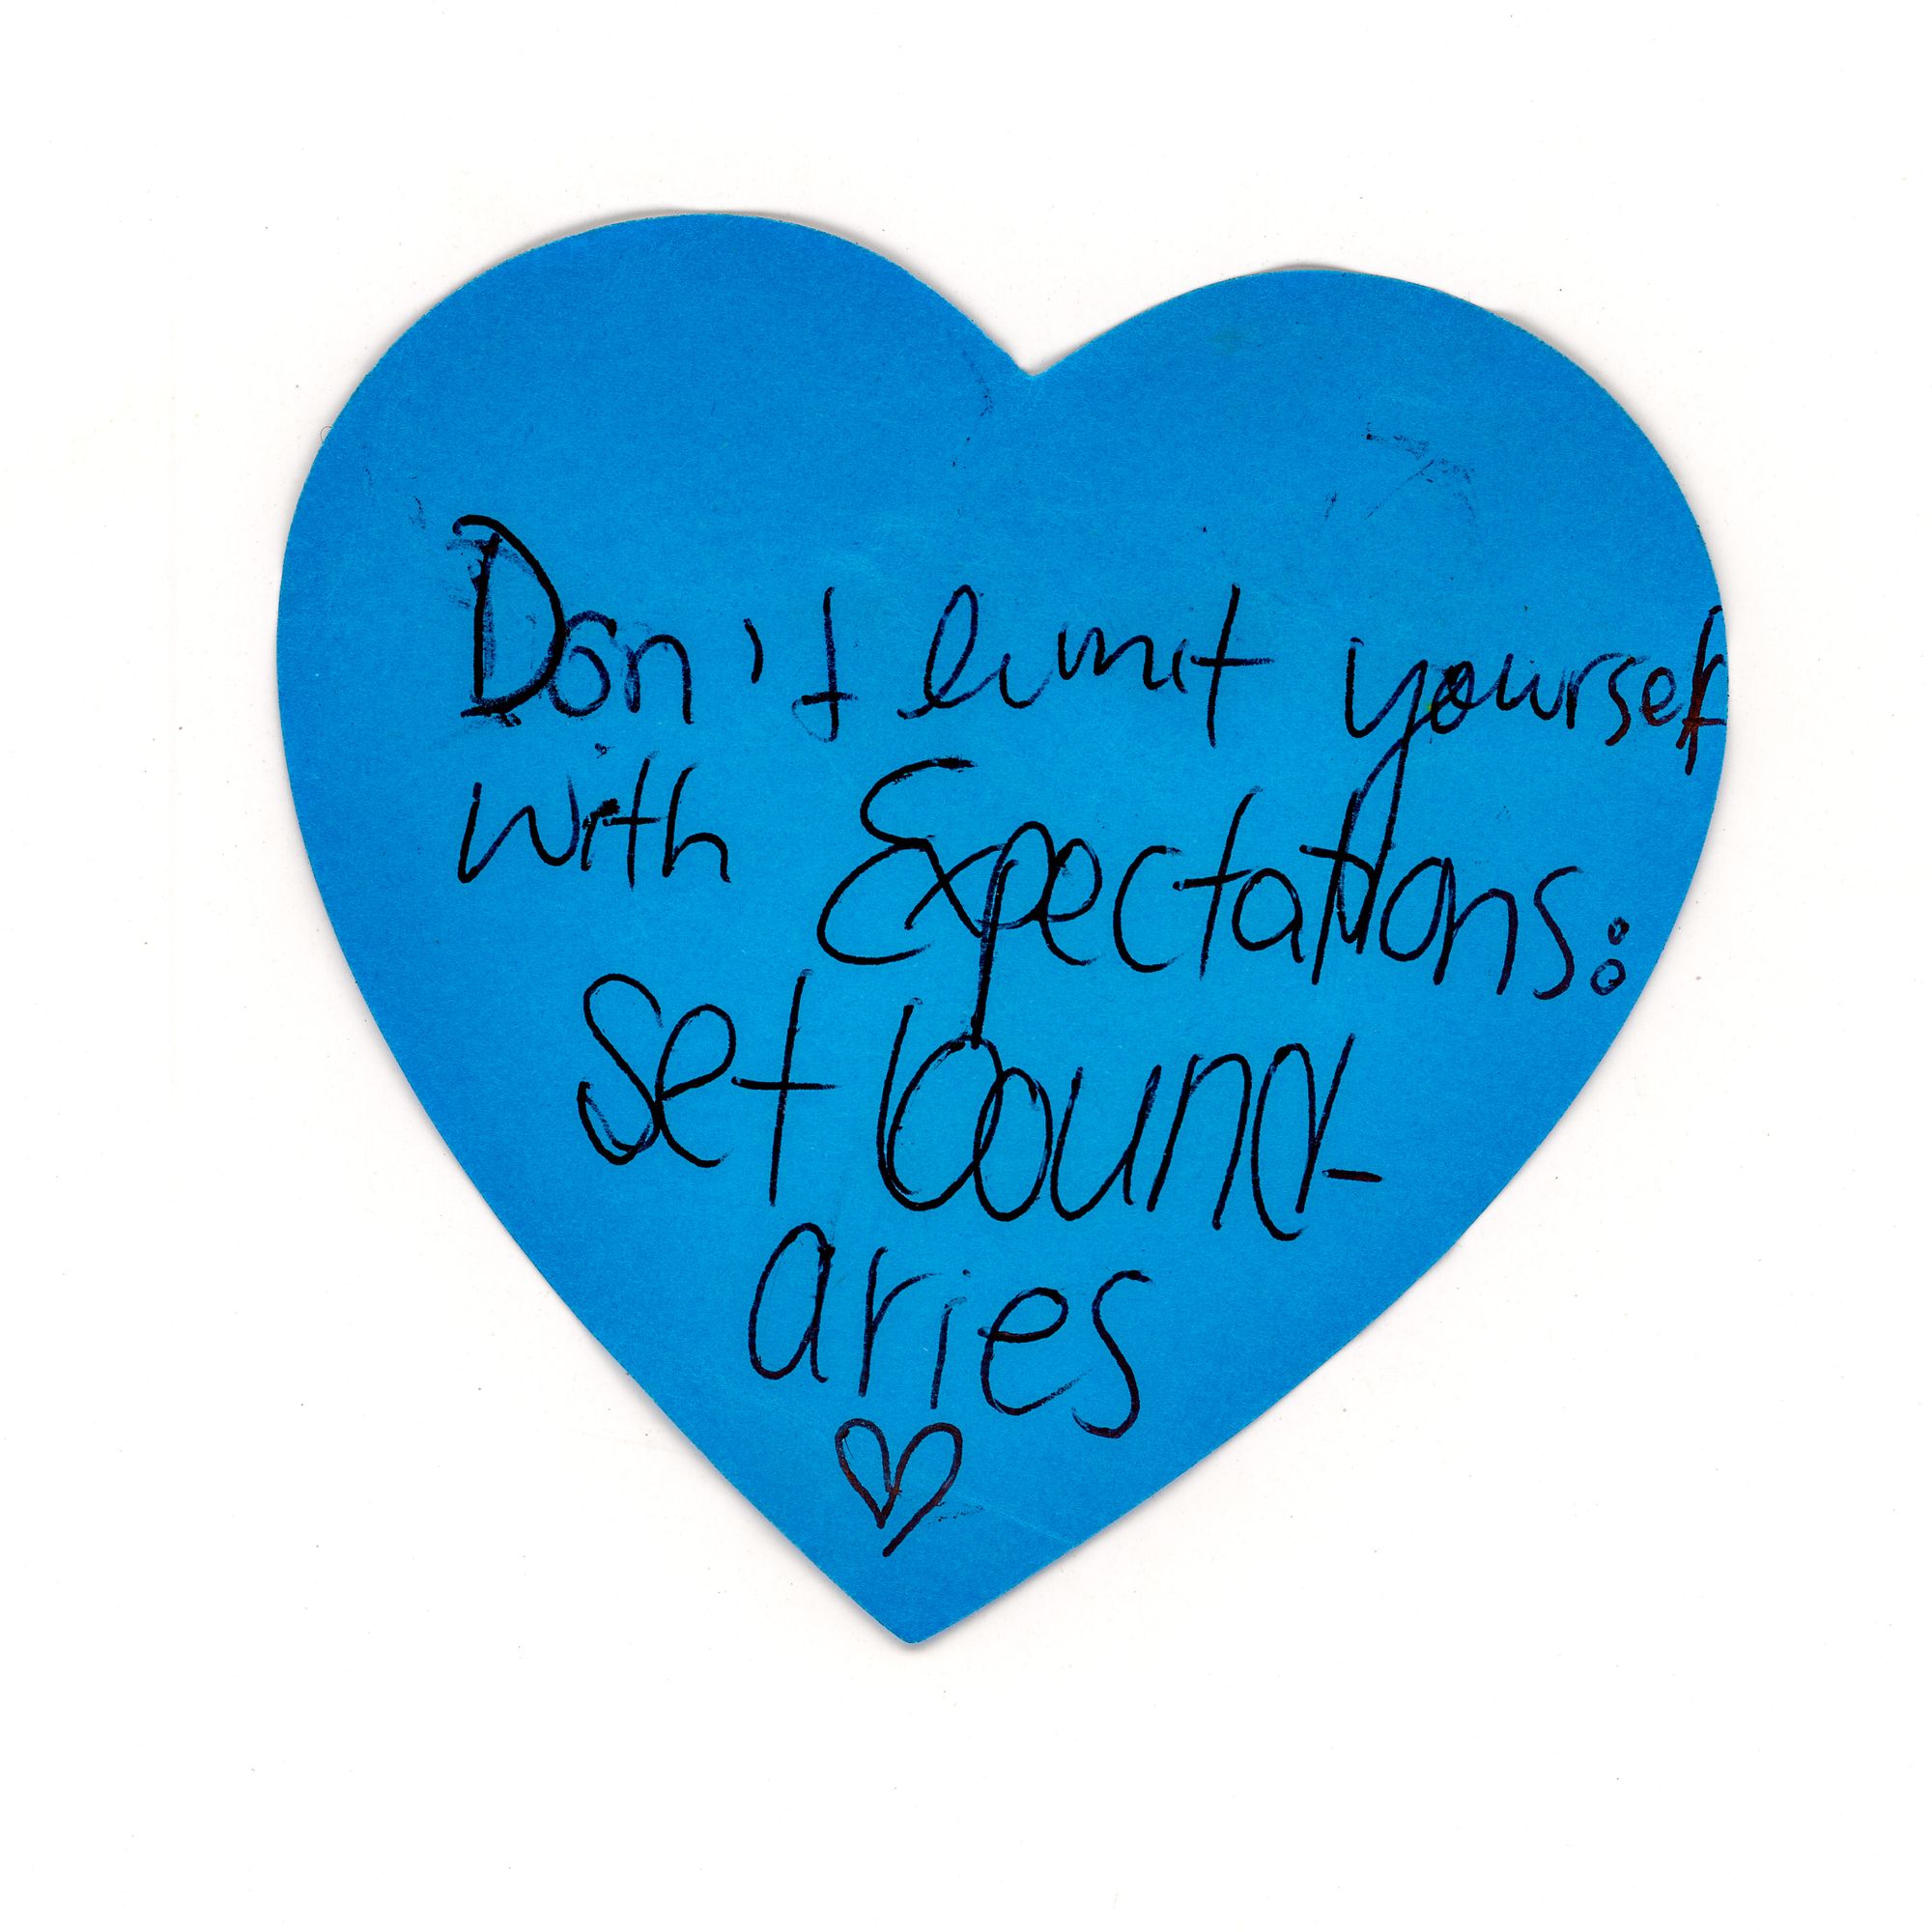 Don't limit yourself
with Expectations:
set bound-
aries